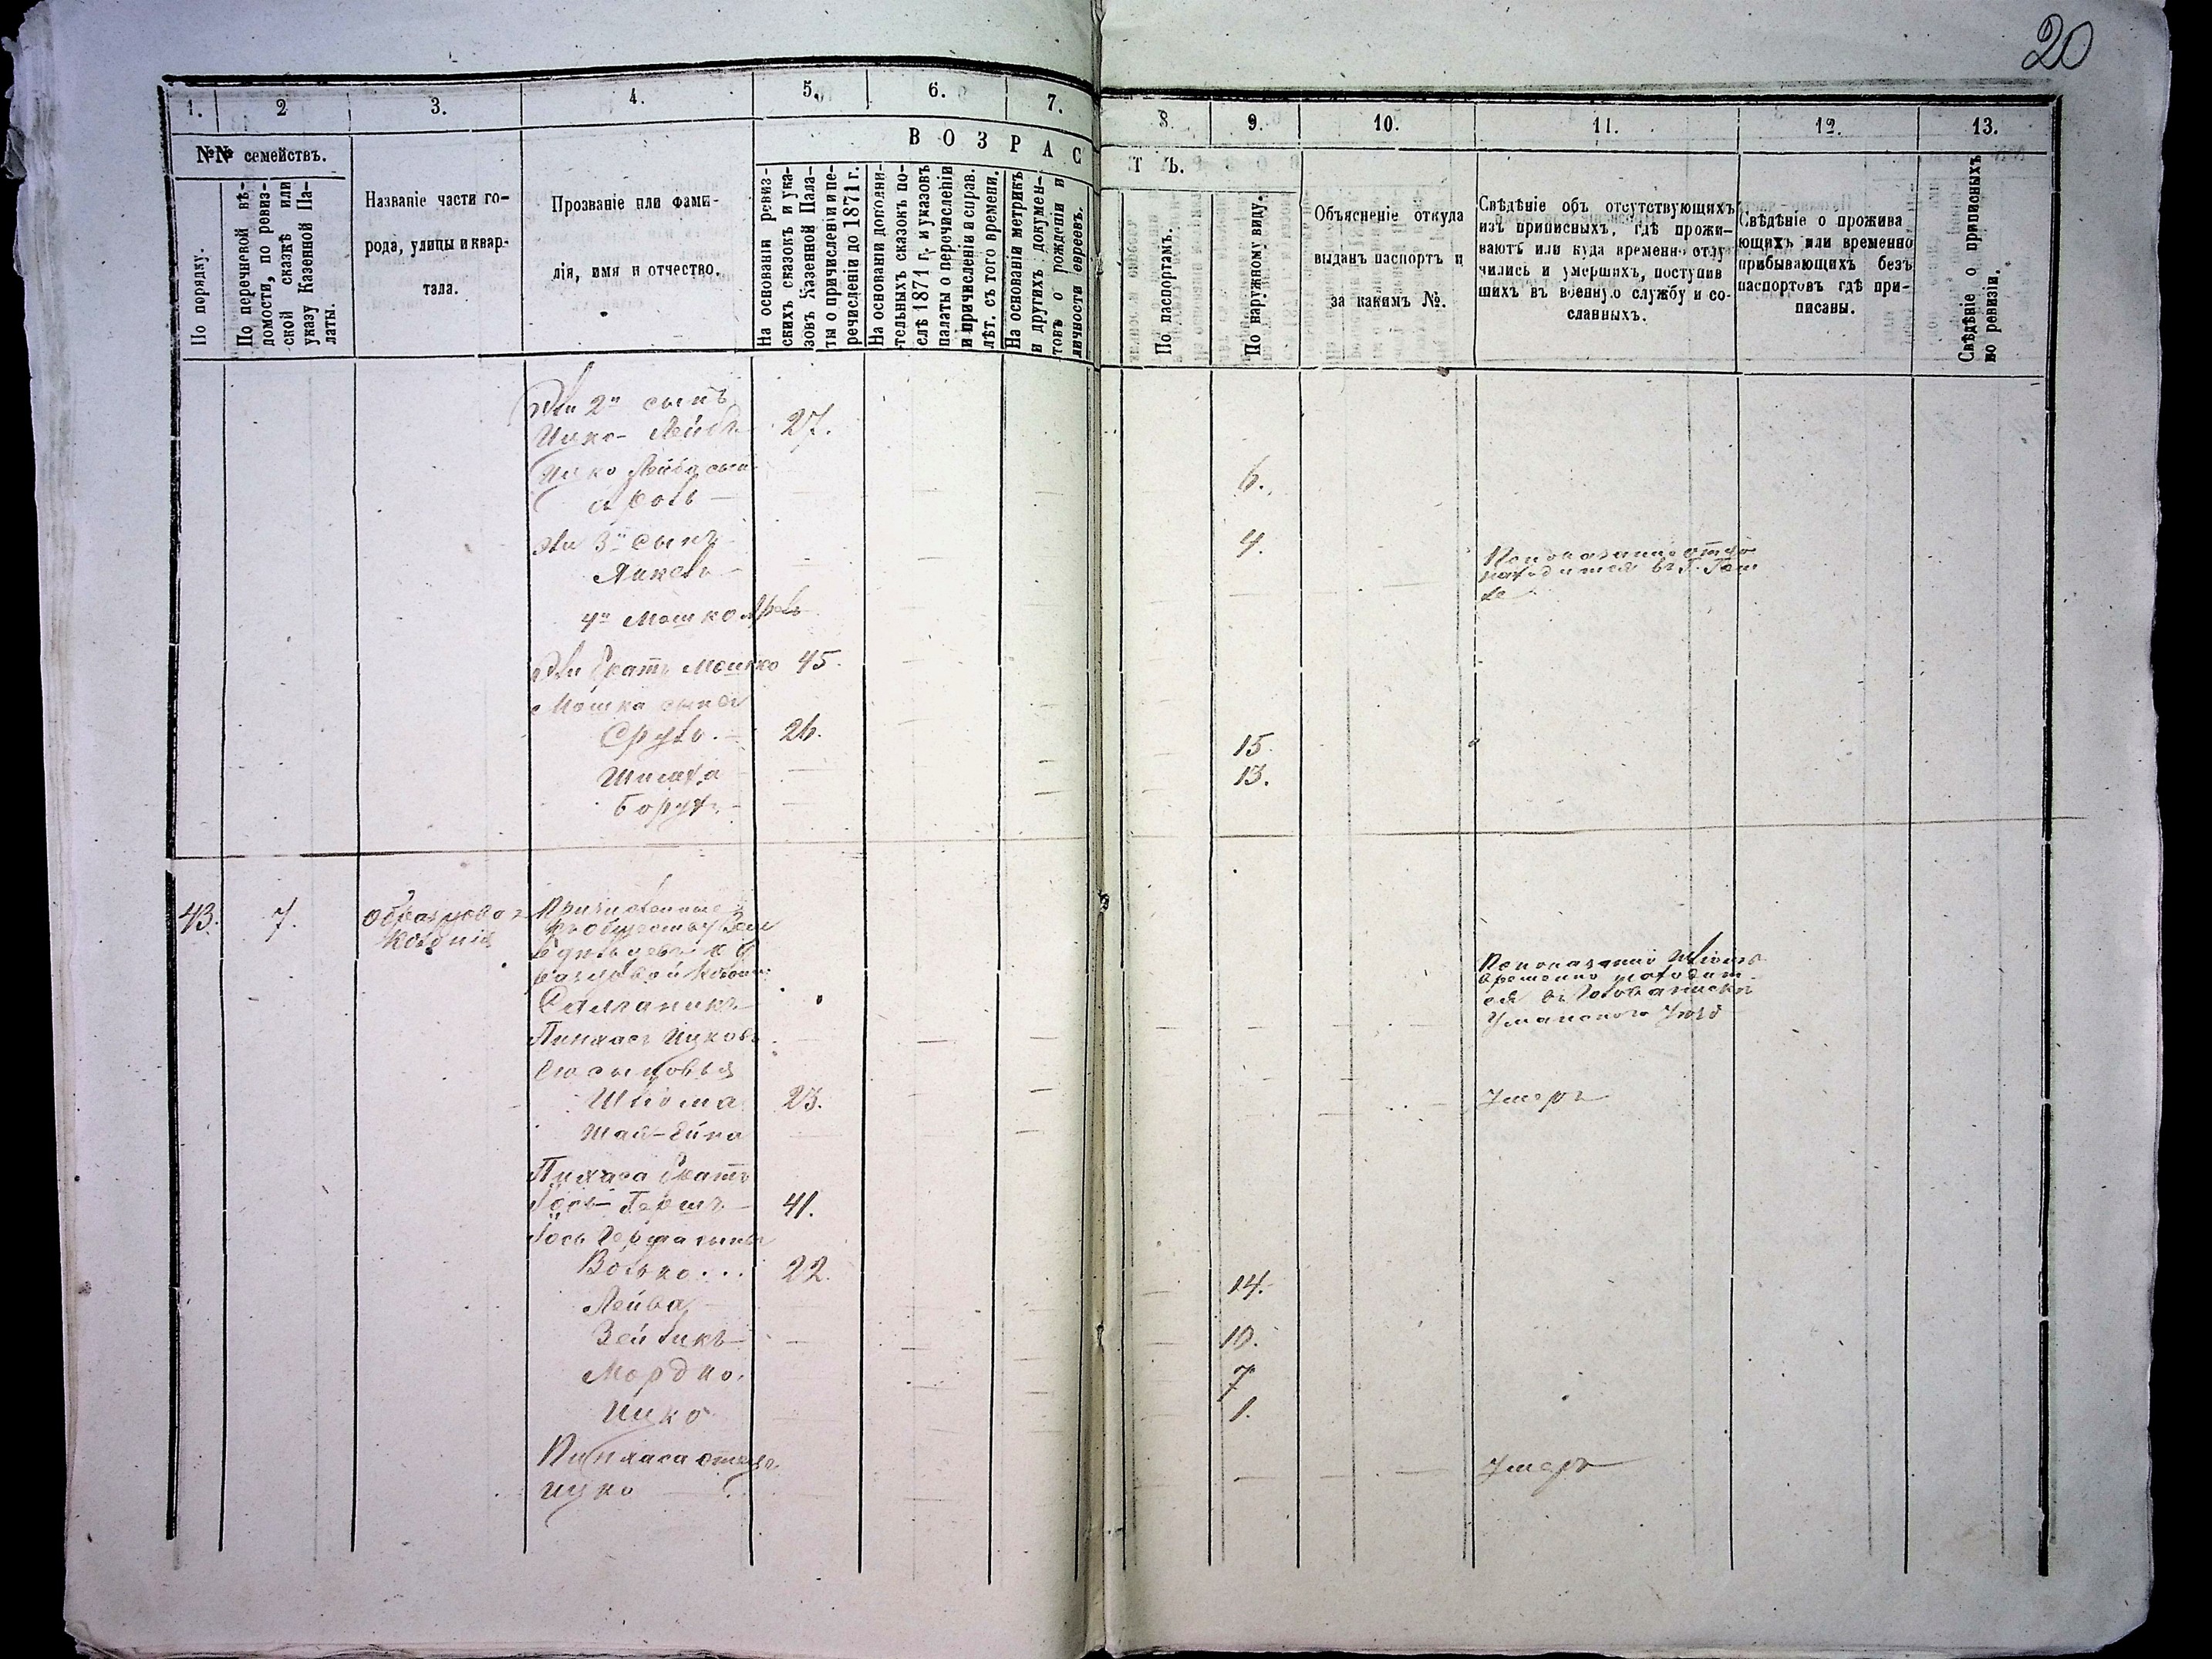 20
1. 2 3. 4. 5. 6. 7. 8. 9. 10. 11. 12. 13.
№№ семействъ.
По порядку.
По перечневой вѣ-
домости, по ревиз-
ской сказкѣ или
указу Казенной Па-
латы.
Названіе части го-
рода, улицы и квар-
тала.
Прозваніе или фами-
лія, имя и отчество.
ВОЗРАСТЪ.
На основаніи ревиз-
скихъ сказокъ и ука-
зовъ Казенной Пала-
ты о причисленіи и пе-
речисленіи до 1871 г.
На основаніи дополни-
тельныхъ сказокъ по-
слѣ 1871 г. и указовъ
палаты о перечисленіи
и причисленіи и справ.
лѣт. съ того времени.
На основаніи метрикъ
и другихъ докумен-
товъ о рожденіи и
личности евреевъ.
По паспортамъ.
По наружному виду.
Объясненіе откуда
выданъ паспортъ и
за какимъ №.
Свѣдѣніе объ отсутствующихъ
изъ приписныхъ, гдѣ прожи-
ваютъ или куда временно отлу
чились и умершихъ, поступив
шихъ въ военную службу и со-
сланныхъ.
Свѣдѣніе о прожива
ющихъ или временно
прибывающихъ безъ
паспортовъ гдѣ при-
писаны.
Свѣдѣніе о приписныхъ
по ревизіи.
2й сынъ
Ицко-Лейба 27.
Ицко Лейба сынъ
6.
3й сынъ 4.
Янкель
находится въ г.
4й Мошко
братъ Мошко 45.
Мошка сынъ
Сруль. 26. 15.
13.
Борухъ
43. 7. Образцовая
колонія
Причисленные
къ обществу Зем
бразцовой колоніи
Пинхасъ Ицковъ
Его сыновья
Шліома 23. Умеръ
временно находит-
ся въ Голованевскѣ
Уманскаго Уѣзд
Пинхаса братъ
Іось-Гершъ 41.
Іось Герша сынъ
Волько... 22. 14.
Лейба
Зейликъ 10.
Мордко. 7
Ицко 1.
Пинхаса отецъ
Ицко Умеръ